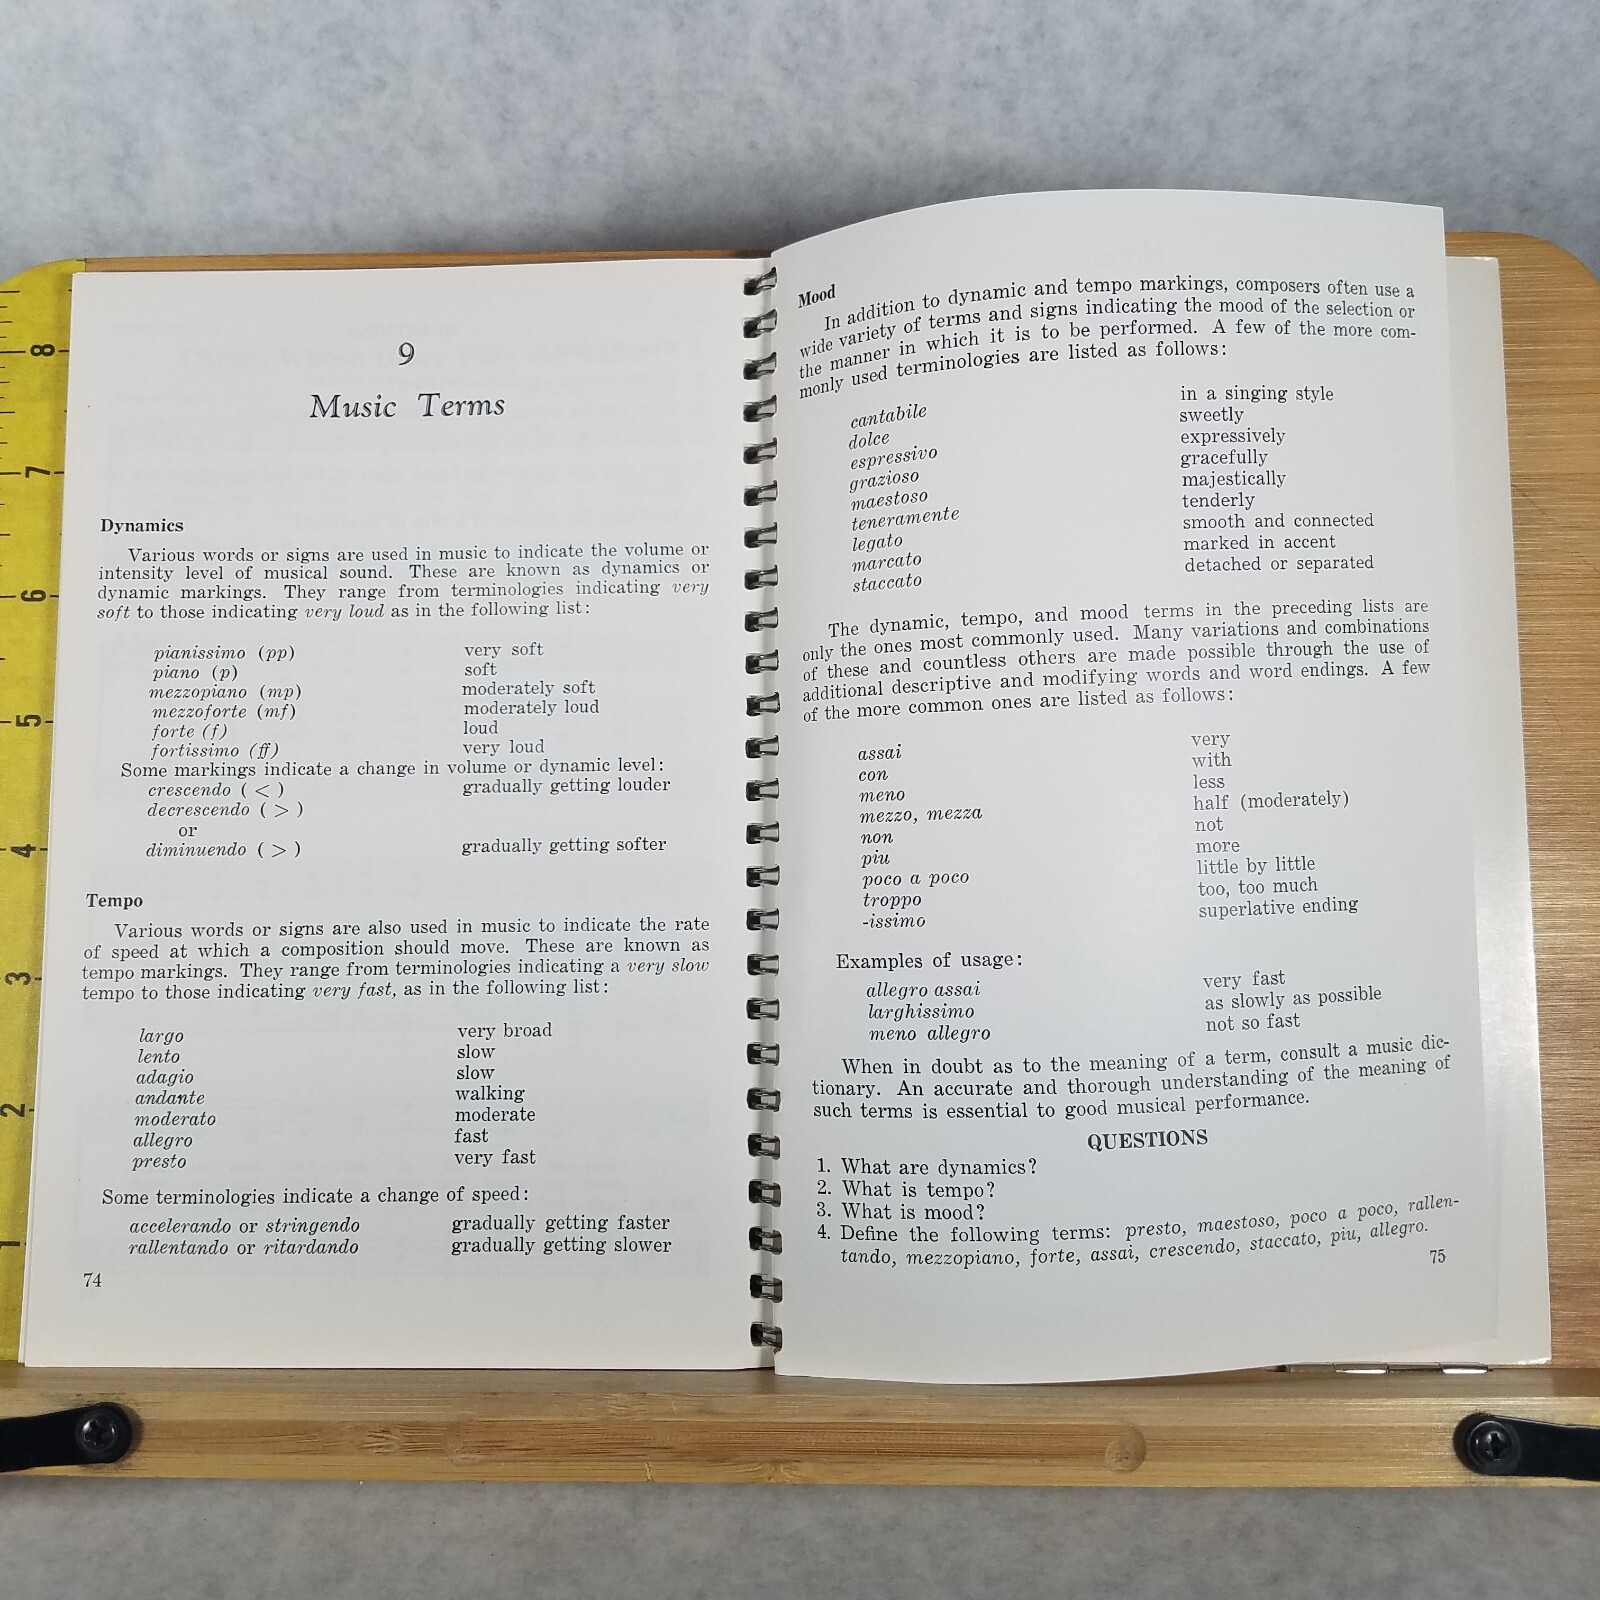 9
Music Terms
Dynamics
Various words or signs are used in music to indicate the volume or
intensity level of musical sound. These are known as dynamics or
dynamic markings. They range from terminologies indicating very
soft to those indicating very loud as in the following list:
pianissimo (pp) very soft
piano (p) soft
mezzopiano (mp) moderately soft
mezzoforte (mf) moderately loud
forte (f) loud
fortissimo (ff) very loud
Some markings indicate a change in volume or dynamic level:
crescendo ( < ) gradually getting louder
decrescendo ( > )
or
diminuendo ( > ) gradually getting softer
Tempo
Various words or signs are also used in music to indicate the rate
of speed at which a composition should move. These are known as
tempo markings. They range from terminologies indicating a very slow
tempo to those indicating very fast, as in the following list:
largo very broad
lento slow
adagio slow
andante walking
moderato moderate
allegro fast
presto very fast
Some terminologies indicate a change of speed:
accelerando or stringendo gradually getting faster
rallentando or ritardando gradually getting slower
74
Mood
In addition to dynamic and tempo markings, composers often use a
wide variety of terms and signs indicating the mood of the selection or
the manner in which it is to be performed. A few of the more com-
monly used terminologies are listed as follows:
cantabile in a singing style
dolce sweetly
espressivo expressively
grazioso gracefully
maestoso majestically
teneramente tenderly
legato smooth and connected
marcato marked in accent
staccato detached or separated
The dynamic, tempo, and mood terms in the preceding lists are
only the ones most commonly used. Many variations and combinations
of these and countless others are made possible through the use of
additional descriptive and modifying words and word endings. A few
of the more common ones are listed as follows:
assai very
con with
meno less
mezzo, mezza half (moderately)
non not
piu more
poco a poco little by little
troppo too, too much
-issimo superlative ending
Examples of usage:
allegro assai very fast
larghissimo as slowly as possible
meno allegro not so fast
When in doubt as to the meaning of a term, consult a music dic-
tionary. An accurate and thorough understanding of the meaning of
such terms is essential to good musical performance.
QUESTIONS
1. What are dynamics?
2. What is tempo?
3. What is mood?
4. Define the following terms: presto, maestoso, poco a poco, rallen-
tando, mezzopiano, forte, assai, crescendo, staccato, piu, allegro.
75
8
7
6
5
4
3
2
1